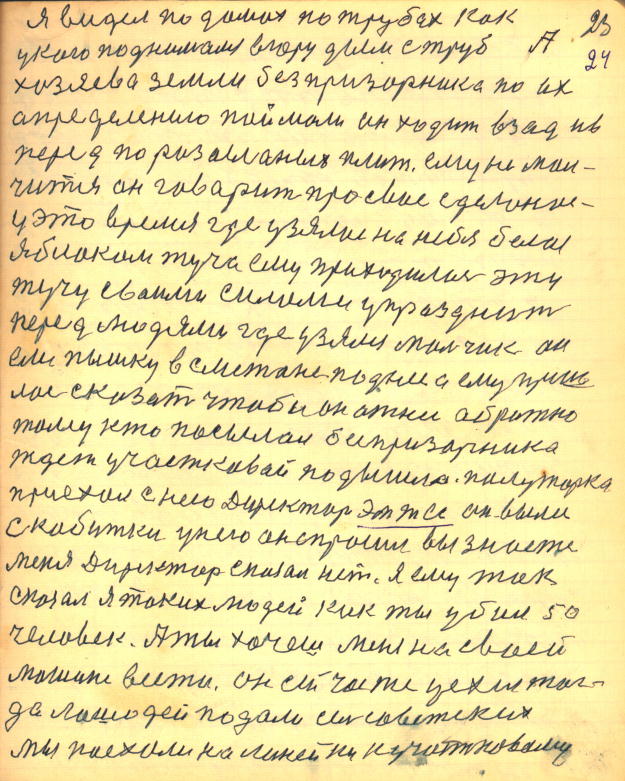 Я видел по домах по трубах как 23
у кого поднимался вгору дым с труб А 24
хозяева земли безпризорника по их
апределению поймали он ходит взад ив
перед по разасланых плит. ему не мал-
чится он говарит про свае сделоное-
у это время где узялос на небя белое
яблоком туча ему приходилос эту
тучу своими силами упразднит
перед людями где узялся малчик он
ел пышку в сметане подыме ему пришь
лос сказат чтобы он отнес абратно
тому кто посылал беспризорника
ждет участковай подышла. полуторка
приехал с нею Директор эмтес он выли
с кабитки унего он спросил вы знаете
меня Директор сказал нет. я ему так
сказал я таких людей как ты убил 50
человек. А ты хочеш меня на своей
машине вести. он сей час же уехал таг-
да лошодей подали сельсоветских
мы поехали на линейки к участковаму